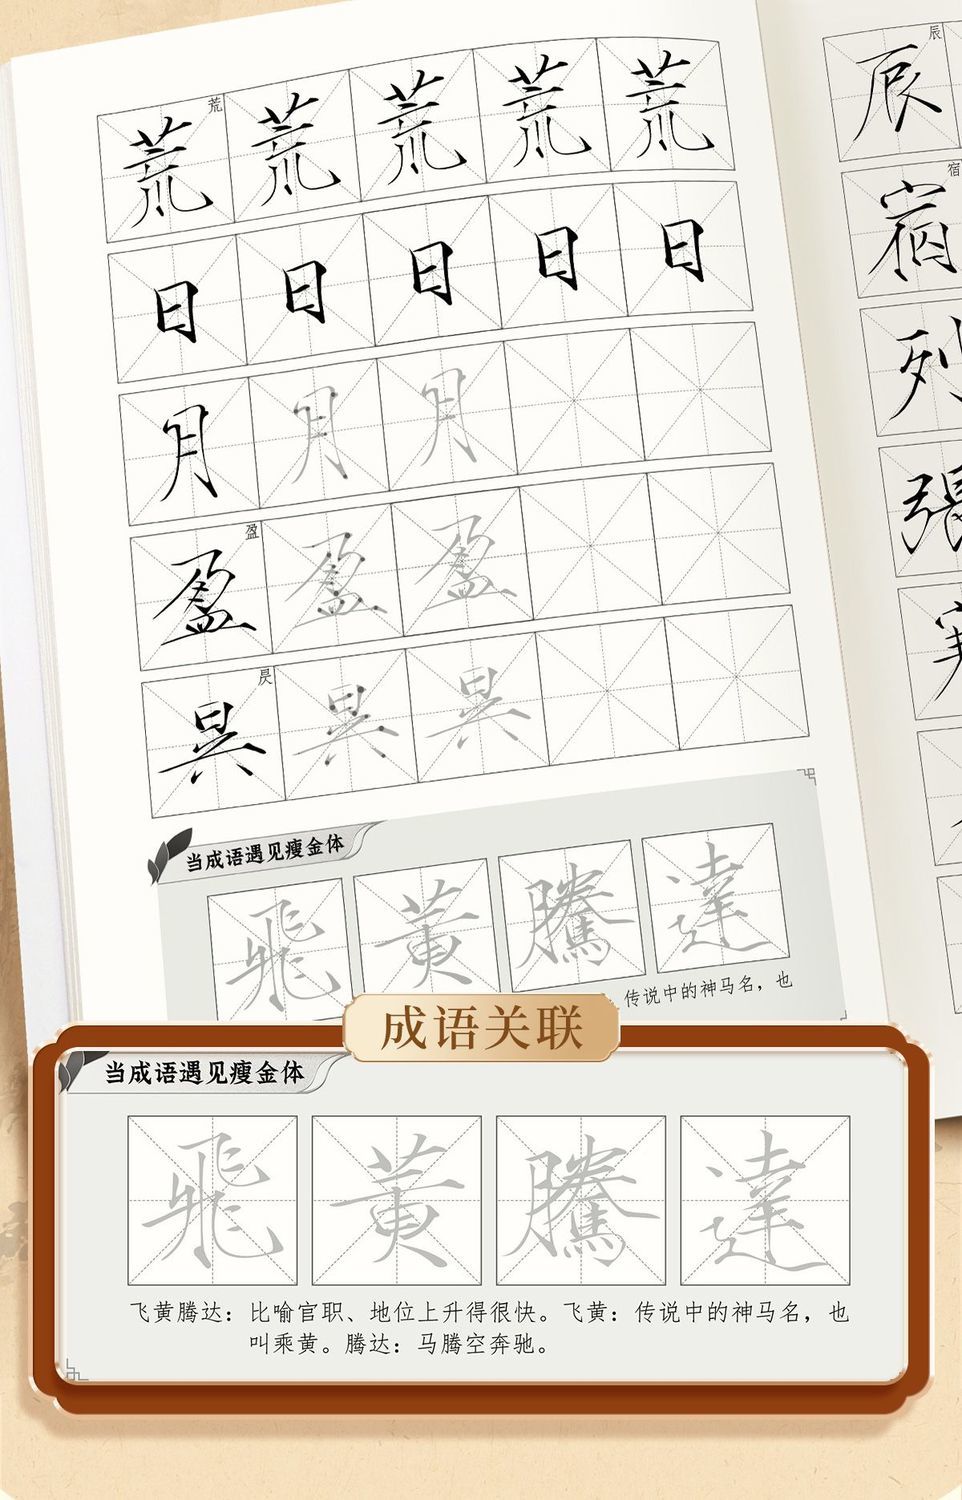 荒 荒 荒 荒 荒 荒
日 日 日 日 日
月 月 月
盈 盈 盈 盈
昃 昗 昗 昗
当成语遇见瘦金体
飛 黃 騰 達
传说中的神马名，也
辰 辰
宿 宿
列
張
成语关联
当成语遇见瘦金体
飛 黃 騰 達
飞黄腾达：比喻官职、地位上升得很快。飞黄：传说中的神马名，也
叫乘黄。腾达：马腾空奔驰。